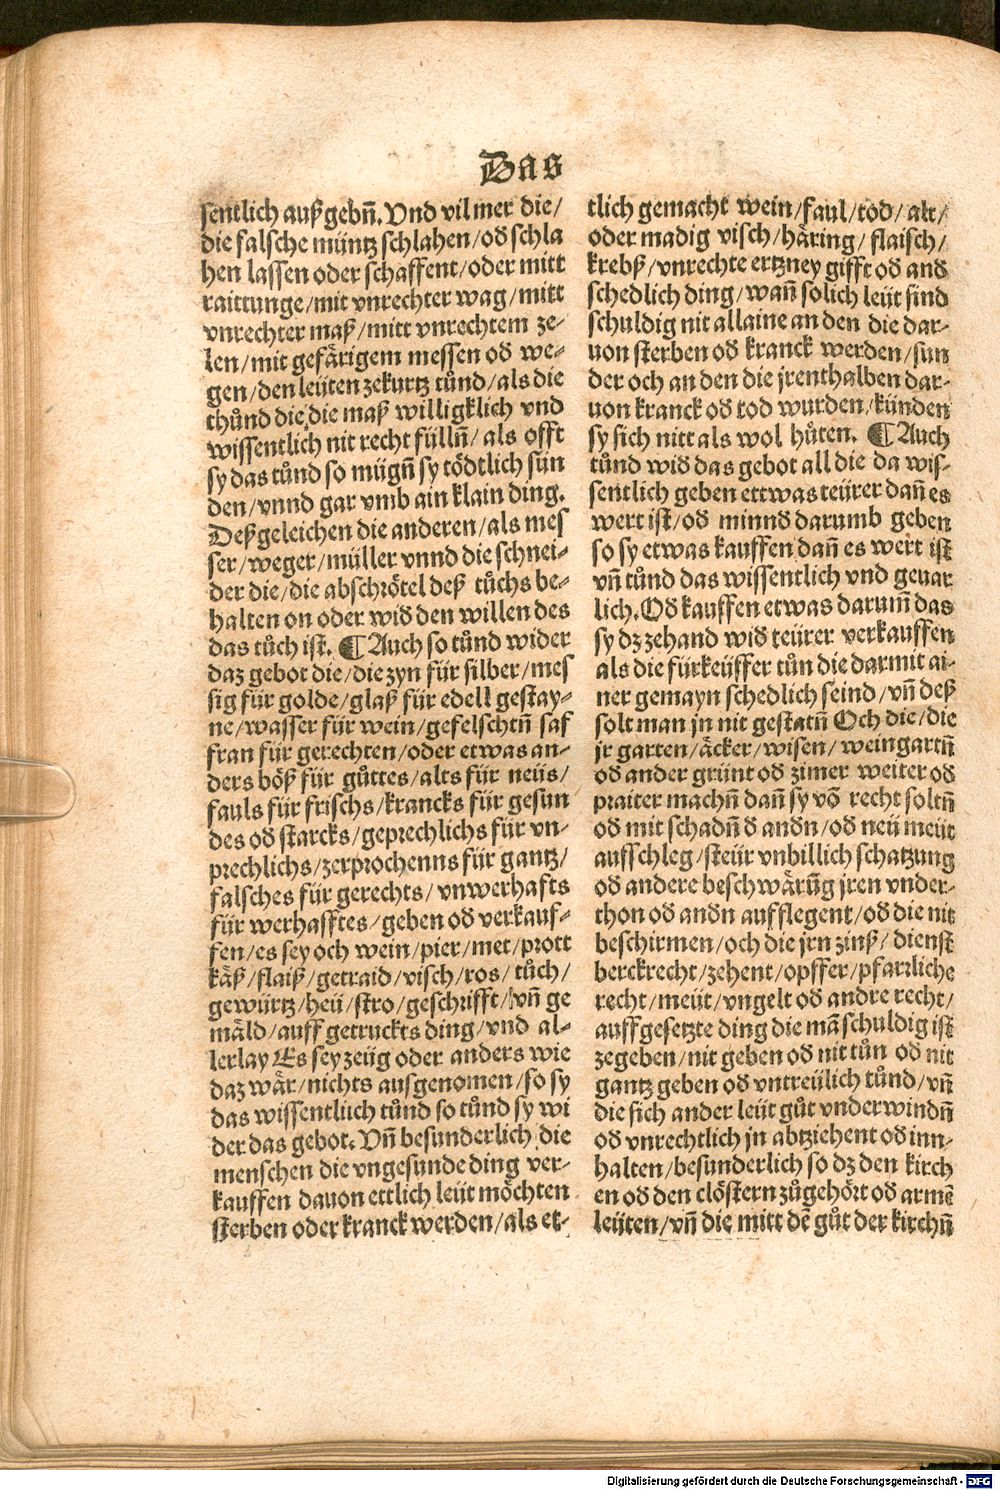 Das
sentlich außgebñ. Vnd vil mer die/
die falsche müntz schlahen/od̄ schla
hen lassen oder schaffent/oder mitt
raittunge/mit vnrechter wag/mitt
vnrechter maß/mitt vnrechtem ze-
len/mit gefärigem messen od̄ we-
gen/den leüten zekurtz tůnd/als die
thůnd die die maß willigklich vnd
wissentlich nit recht fülln̄/als offt
sy das tůnd so mügn̄ sy tödtlich sün
den/vnnd gar vmb ain klain ding.
Deßgeleichen die anderen/als mes
ser/weger/müller vnnd die schnei-
der die/die abschrötel deß tůchs be-
halten on oder wid̄ den willen des
das tůch ist. ¶ Auch so tůnd wider
daz gebot die/die zyn für silber/mes
sig für golde/glaß für edell gestay-
ne/wasser für wein/gefelschtn̄ saf
fran für gerechten/oder etwas an-
ders böß für gůttes/alts für neüs/
fauls für frischs/krancks für gesun
des od̄ starcks/geprechlichs für vn-
prechlichs/zerprochenns für gantz/
falsches für gerechts/vnwerhafts
für werhafftes/geben od̄ verkauf-
fen/es sey och wein/pier/met/prott
käß/flaiß/getraid/visch/ros/tůch/
gewürtz/heü/stro/geschrifft/vn̄ ge
mäld/auff getruckts ding/vnd al-
lerlay Es sey zeüg oder anders wie
daz wär/nichts ausgenomen/so sy
das wissentliich tůnd so tůnd sy wi
der das gebot. Vn̄ besunderlich die
menschen die vngesunde ding ver-
kauffen dauon ettlich leüt möchten
sterben oder kranck werden/als et-
tlich gemacht wein/faul/tod/alt/
oder madig visch/häring/flaisch/
krebß/vnrechte ertzney gifft od̄ and̄
schedlich ding/wan̄ solich leüt sind
schuldig nit allaine an den die dar-
uon sterben od̄ kranck werden/sun
der och an den die jrenthalben dar-
uon kranck od̄ tod wurden/künden
sy sich nitt als wol hüten. ¶ Auch
tůnd wid̄ das gebot all die da wis-
sentlich geben ettwas teürer dan̄ es
wert ist/od̄ minnd̄ darumb geben
so sy etwas kauffen dan̄ es wert ist
vn̄ tůnd das wissentlich vnd geuar
lich. Od̄ kauffen etwas darum̄ das
sy dz zehand wid̄ teürer verkauffen
als die fürkeüffer tůn die darmit ai-
ner gemayn schedlich seind/vn̄ deß
solt man jn nit gestatn̄ Och die/die
jr garten/äcker/wisen/weingartn̄
od̄ ander grünt od̄ zimer weiter od̄
praiter machn̄ dan̄ sy vō recht soltn̄
od̄ mit schadn̄ d̄ andn̄/od̄ neü meüt
aufschleg/steür vnbillich schatzung
od̄ andere beschwärūg jren vnder-
thon od̄ andn̄ aufflegent/od̄ die nit
beschirmen/och die jrn zinß/dienst
berckrecht/zehent/opffer/pfarrliche
recht/meüt/vngelt od̄ andre recht/
auffgesetzte ding die mā schuldig ist
zegeben/nit geben od̄ nit tůn od̄ nit
gantz geben od̄ vntreülich tůnd/vn̄
die sich ander leüt gůt vnderwindn̄
od̄ vnrechtlich jn abtziehent od̄ inn-
halten/besunderlich so dz den kirch
en od̄ den clöstern zůgehört od̄ armē
leüten/vn̄ die mitt dē gůt der kirchn̄
Digitalisierung gefördert durch die Deutsche Forschungsgemeinschaft - DFG